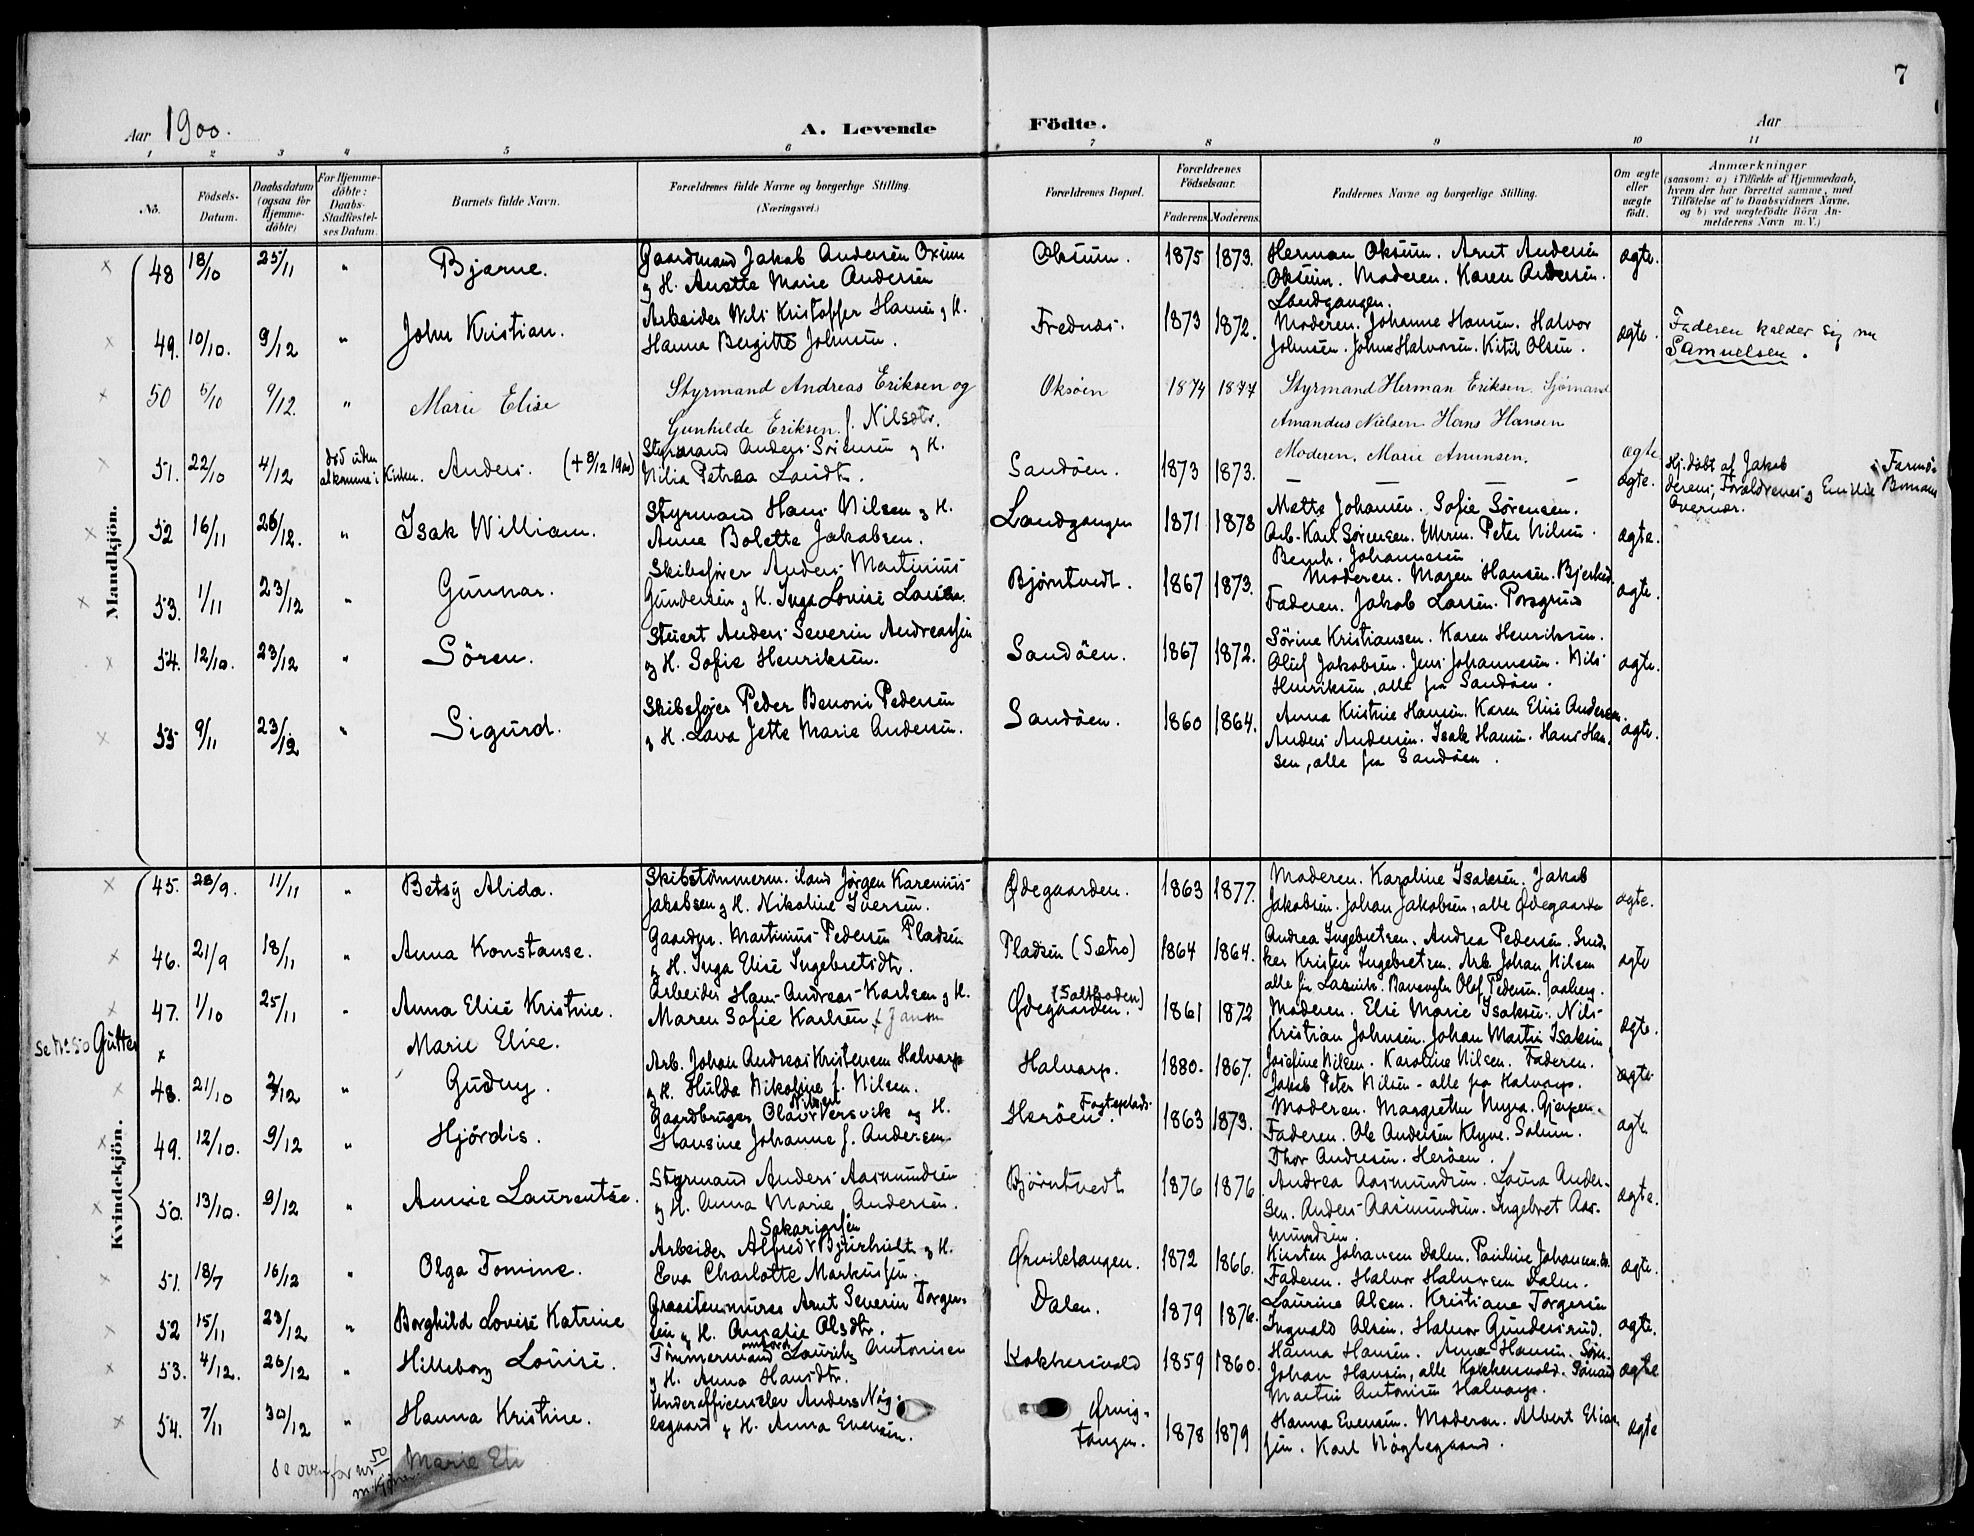 7
Aar 1900.
A. Levende Födte.
Aar
1 2 3 4 5 6 7 8 9 10 11
No.
Födsels-Datum.
Daabsdatum (ogsaa for Hjemme-döbte)
For Hjemme-döbte: Daabs-Stadfæstel-ses Datum.
Barnets fulde Navn.
Forældrenes fulde Navne og borgerlige Stilling. (Næringsvei.)
Forældrenes Bopæl.
Forældrenes Födselsaar.
Faderens. Moderens.
Faddernes Navne og borgerlige Stilling.
Om ægte eller uægte födt.
Anmærkninger
(saasom: a) i Tilfælde af Hjemmedaab,
hvem der har forrettet samme, med
Tilföielse af to Daabsvidners Navne,
og b) ved uægtefödte Börn An-
melderens Navn m. V.)
Mandkjön.
48 18/10 25/11 " Bjarne. Gaardmand Jakob Andersen Oxum Oksum. 1875 1873. Herman Oksum. Arnt Andersen ægte.
og H. Anette Marie Andersen Oksum. Moderen. Karen Andersen.
Landgangen.
49. 10/10. 9/12 " John Kristian. Arbeider Nils Kristoffer Hansen og H. Frednæs. 1873 1872. Moderen. Johanne Hansen. Halvor ægte. Faderen kalder sig nu
Hanna Bergitte Johnsen. Johnsen. John Halvorsen. Kitil Olsen. Samuelsen.
50 5/10 9/12. " Marie Elise Styrmand Andreas Eriksen og Oksöen 1874 1877 Styrmand Herman Eriksen. Sjømand
Gunhilde Eriksen f. Nilsdtr. Amandus Nielsen Hans Hansen
Moderen, Marie Amunsen. ægte
51. 22/10 4/12 död uden at komme i Kirken. Anders. (+ 8/12 1900) Styrmand Anders Sörensen og H. Sandöen. 1873 1873. — — — — ægte. Hj.döbt af Jakob
Nilia Petrea Landtr.
52 16/11 26/12. " Isak William. Styrmand Hans Nilsen og H. Landgangen 1871 1878 Mette Johansen. Sofie Sörensen.
Anne Bolette Jakobsen. Arb. Karl Sörensen. Peter Nilsen. ægte.
Bernh. Johannesen
53. 1/11 23/12 " Gunnar. Skibsförer Anders Martinius Bjørntvedt. 1867 1873. Moderen. Maren Hansen. ægte.
Gundersen og H. Inga Lovise Larsen. Faderen. Jakob Larsen. Porsgrund
54. 12/10. 23/12 " Sören. Stuert Anders Severin Andreassen Sandöen. 1867 1872. Sörine Kristiansen. Karen Henriksen.
og H. Sofie Henriksen. Oluf Jakobsen. Jens Johannesen. Nils ægte.
Henriksen, alle fra Sandöen.
55 9/11 23/12 " Sigurd. Skibsförer Peder Benoni Pedersen Sandöen. 1860 1864. Anna Kristine Hansen. Karen Elise Andersen.
og H. Lava Jette Marie Andersen. Anders Andersen. Isak Hansen. Hans Han- ægte.
sen, alle fra Sandöen.
Kvindekjön.
45. 28/9. 11/11 " Betsy Alida. Skibstömmerm. iland Jörgen Karenius Ødegaarden. 1863 1877. Moderen. Karoline Isaksen. Jakob ægte.
Jakobsen og H. Nikoline Iversen. Jakobsen. Johan Jakobsen, alle Ødegaarden
46. 21/9 18/11 " Anna Konstanse. Gaardbr. Martinius Pedersen Pladsen Pladsen (Sætre) 1864 1864. Andrea Ingebretsen. Andrea Pedersen. Sned-
og H. Inga Elise Ingebretsdtr. ker Kristen Ingebretsen. Arb. Johan Nilsen ægte
47. 1/10 25/11 " Anna Elise Kristine. Arbeider Hans Andreas Karlsen og H. Ødegaarden. (Saltboden) 1861 1872 Moderen. Else Marie Isaksen. Nils ægte.
Maren Sofie Karlsen f. Jansen Kristian Johnsen. Johan Martin Isaksen
se No 50 Gutter x Marie Elise.
48. 21/10 2/12 " Gudny. Arb. Johan Andreas Kristensen Halvarp Halvarp. 1880. 1867. Josefine Nilsen. Karoline Nilsen. Faderen. ægte.
og H. Hulda Nikoline f. Nilsen. Jakob Peter Nilsen - alle fra Halvarp.
49. 12/10. 9/12 " Hjördis. Gaardbruger Olaf Nilsen Versvik og H. Heröen. 1863 1873. Moderen. Margrethe Myra. Gjerpen. ægte
Hansine Johanne f. Andersen. Faderen. Ole Andersen Klyve. Solum.
Thor Andresen. Heröen.
50. 13/10. 9/12 " Annie Laurentse. Styrmand Anders Aasmundsen Bjørntvedt 1876 1876 Andrea Aasmundsen. Laura Ander- ægte.
og H. Anna Marie Andersen. sen. Anders Aasmundsen. Ingebret Aas-
mundsen.
51. 18/7 16/12 " Olga Tomine. Arbeider Alfred Sakariassen Bjurhult og H. Ørvikstangen. 1872 1866. Kirsten Johansen Dalen. Pauline Johansen. ægte.
Eva Charlotte Markussen. Faderen. Halvor Halvorsen Dalen.
52 15/11 23/12 " Borghild Lovise Katrine Graastensmurer Arnt Severin Torger- Dalen. 1879 1876. Laurine Olsen. Kristiane Torgersen ægte.
sen og H. Amalie Olsdtr. Ingvald Olsen. Halvor Gundersrud.
53. 4/12. 26/12 " Hilleborg Lovise. Tömmermand ombord Laurits Antonisen Kokkersvold 1859 1860. Hanna Hansen. Anna Hansen. ægte
og H. Anna Hansdtr. Johan Hansen, alle Kokkersvold. Sömand
Martin Antonisen Halvarp.
54. 7/11 30/12 " Hanna Kristine. Underofficerselev Anders Nög- Ørvigs- 1878 1879 Hanna Evensen. Moderen. Albert Elias- ægte
legaard og H. Anna Evensen. tangen. sen. Karl Nöglegaard.
se ovenfor nr 50 m.kjön. Marie Eli